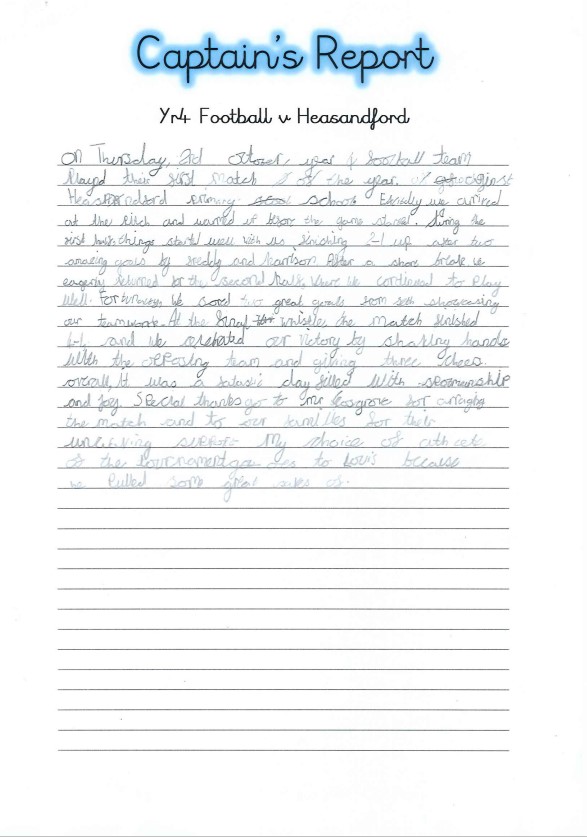 Captain's Report
Yr4 Football v Heasandford
On Thursday, 2rd October, year 4 football team
Played their first match of the year, against
Heasandford primary school. Excitedly we arrived
at the pitch and warmed up before the game started. During the
first half things started well with us finishing 2-1 up after two
amazing goals by Freddy and Harrison After a short break we
eagerly returned for the second half, where we continued to play
well. Fortunately we scored two great goals from Seth showcasing
our teamwork. At the final whistle, the match finished
and we celebrated our victory by shaking hands
with the opposing team and giving three cheers.
overall, it was a fantastic day filled with sportsmanship
and joy. Special thanks go to Mr Cosgrove for arranging
the match and to our families for their
unwavering support. My choice of athlete
of the tournament goes to Louis because
he pulled some great saves of.